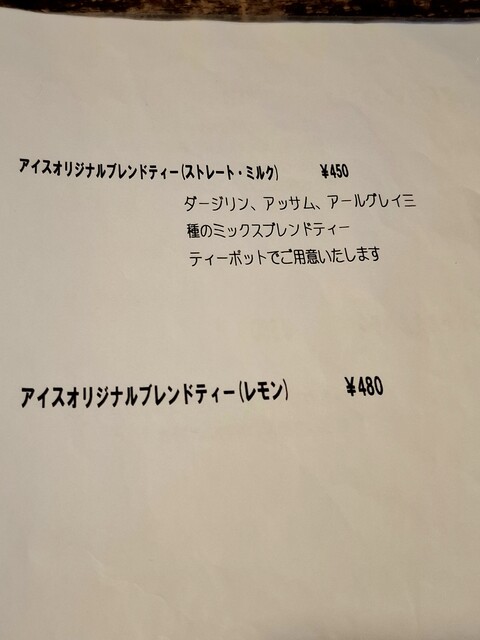 アイスオリジナルブレンドティー(ストレート・ミルク) ¥450
ダージリン、アッサム、アールグレイ三
種のミックスブレンドティー
ティーポットでご用意いたします
アイスオリジナルブレンドティー(レモン) ¥480